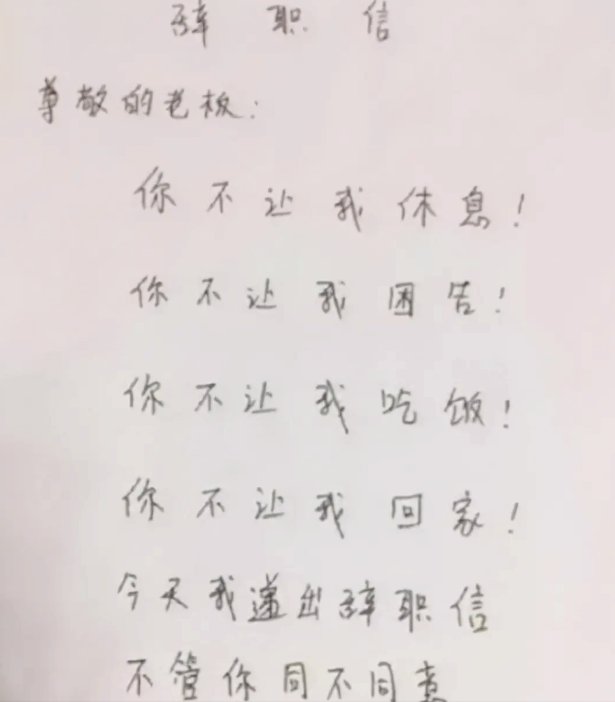 辞职信
尊敬的老板：
你不让我休息！
你不让我困告！
你不让我吃饭！
你不让我回家！
今天我递出辞职信
不管你同不同意